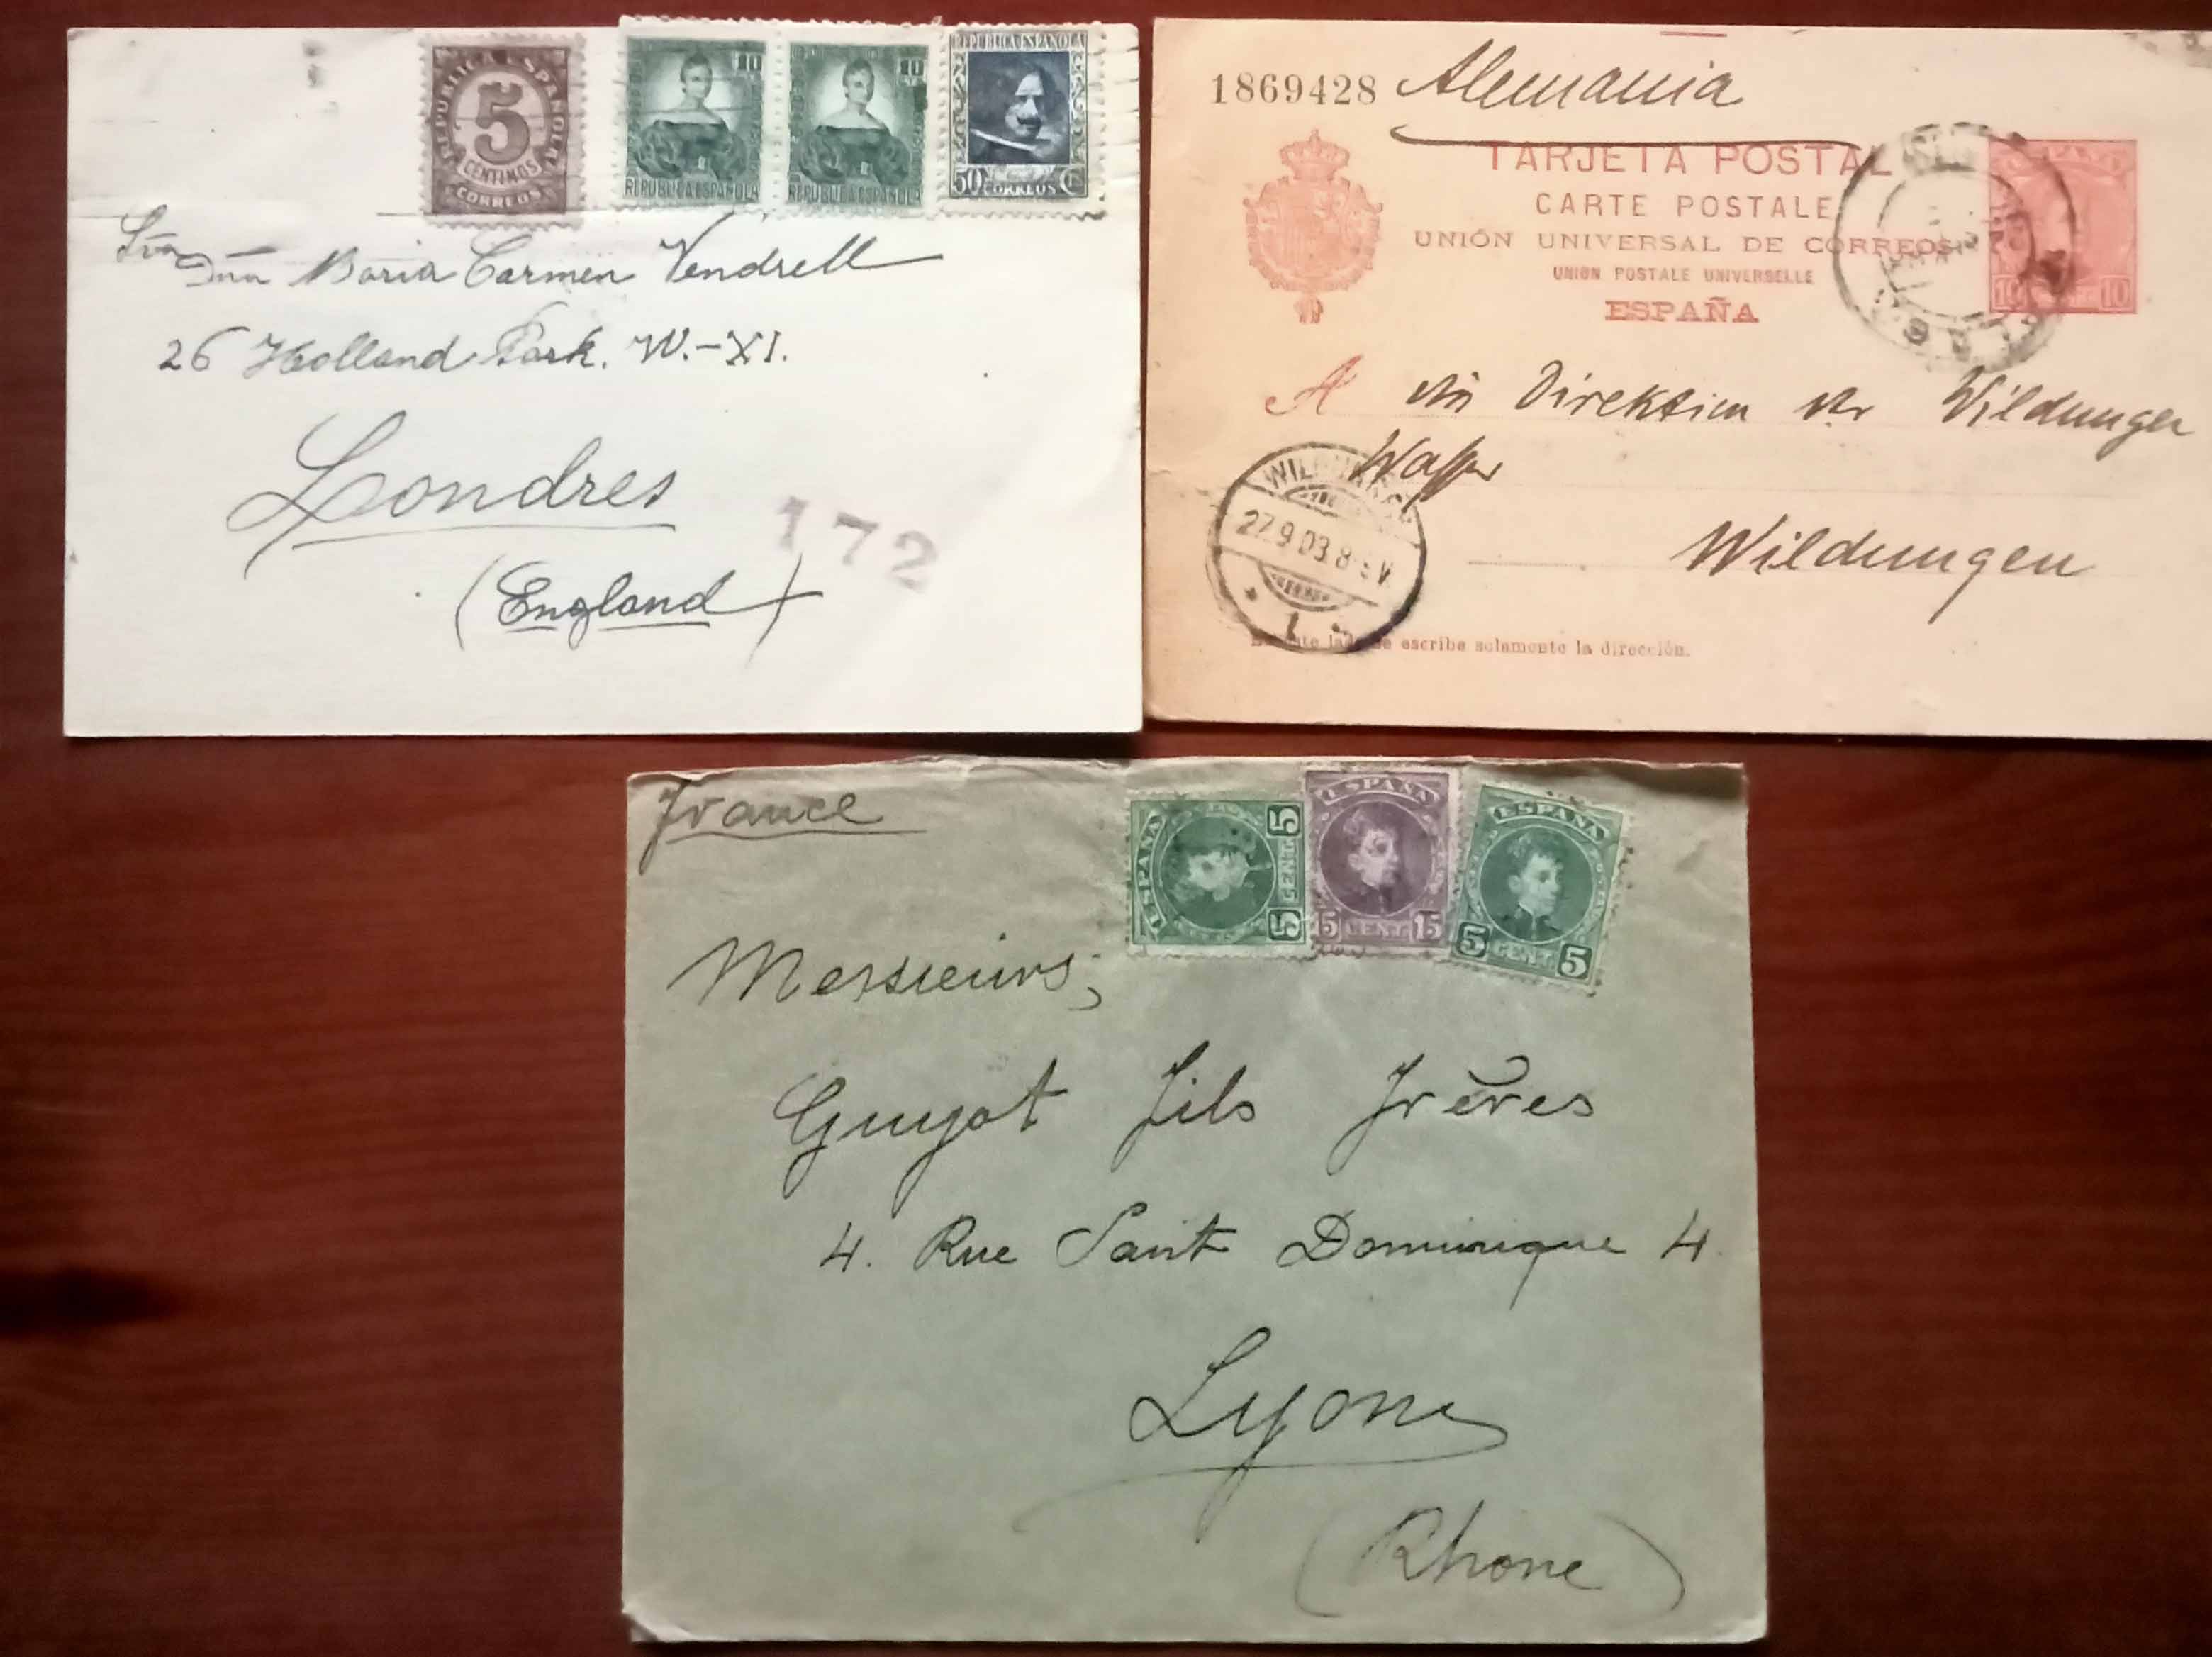 REPUBLICA ESPAÑOLA
5
CENTIMOS
CORREOS
10
REPUBLICA ESPAÑOLA
10
REPUBLICA ESPAÑOLA
REPUBLICA ESPAÑOLA
50 CORREOS
Maria Carmen Vendrell
26 Holland Park. W.-XI.
Londres
(England)
172
1869428 Alemania
TARJETA POSTAL
CARTE POSTALE
UNIÓN UNIVERSAL DE CORREOS
UNION POSTALE UNIVERSELLE
ESPAÑA
ESPAÑA
10 10
A Direktion der Wildunger
Wildungen
27.9.03.8
1
se escribe solamente la dirección.
France
ESPAÑA
5 CENT 5
ESPAÑA
15 CENT 15
ESPAÑA
5 CENT 5
Messieurs,
Guyot fils frères
4. Rue Saint Dominique 4
Lyon
(Rhone)